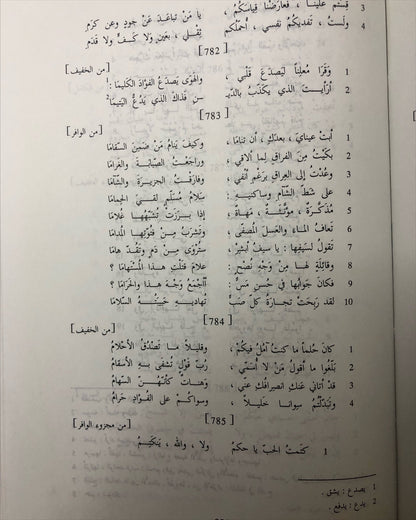 3 قِسْتم علينا ، فعارَضْنا قياسَكُمُ ، يا مَنْ تباعَدَ عَنْ جودٍ وعن كرمِ
4 ولَسْتُ ، تفديكُمُ نفسي ، أُحمّلكم ثِقلي ، بعَينٍ ولا كفٍّ ولا قدمِ
[782]
[من الخفيف]
1 وقَرَا مُعلِناً ليَصدَعَ قَلبي ، والهَوَى يَصدَعُ الفؤادَ الكَليما¹ :
2 أرأيتَ الذي يكَذّبُ بالدّيـ ـنِ فذاكَ الذي يَدُعّ اليَتيما²
[783]
[من الوافر]
1 أبتْ عينايَ ، بعدَكِ ، أن تَناما ، وكيفَ يَنامُ مَنْ ضَمِنَ السّقاما
2 بكَيْتُ مِنَ الفراقِ لِما ألاقي ، وراجَعتُ الصّبابَةَ والغَراما
3 وعُدْتُ إلى العِراقِ برَغْمِ أنْفي ، وفارَقْتُ الجزيرةَ والشّآما
4 على شَطّ الشّآمِ وساكنيهِ ، سَلامُ مُسَلِّمٍ لَقيَ الحِماما
5 مُذَكَّرَةٌ ، مؤنّثَةٌ ، مَهاةٌ ، إذا بَرَزَتْ تُشَبّهُها غُلاما
6 تَعافُ المَاءَ والعَسلَ المُصَفّى ، وتَشرَبُ مِنْ فُتوّتِها المُداما
7 تَقولُ لسَيفِها : يا سيفُ أبشِرْ ، ستُرْوَى مِنْ دَمٍ وتَقُدّ هاما
8 وقائِلَةٍ لها مِنْ وَجْهِ نُصْحٍ : علامَ قَتَلْتِ هذا المُسْتَهاما ؟
9 فكانَ جَوابُها في حُسنِ مَسٍّ : أأجْمَعُ وَجْهَ هذا والحَرَاما ؟
10 لقد رَبِحَتْ تجارَةُ كلّ صَبٍّ تُهاديهِ حَبيبَتُهُ السّلاما
[784]
[من الخفيف]
1 كانَ حُلماً ما كنتُ آمُلُ فيكُمْ ، وقليلاً ما تَصْدُقُ الأحْلامُ
2 بَلّغُوا ما أقولُ مَنْ لا أُسَمّي ، رُبّ قَوْلٍ تُشفَى بهِ الأسقامُ
3 قد أتاني عَنكِ انصرافُكِ عني ، وهَناتٌ كأنّهُنّ السّهامُ
4 وتَبَدّلْتُمُ سِوانا خَليلاً ، وسِواكُمْ على الفُؤادِ حَرامُ
[785]
[من مجزوء الوافر]
1 كتَمتُ الحبّ يا حكَمُ ولا ، والله ، يَنكَتِمُ
1 يصدع : يشق .
2 يدع : يدفع .